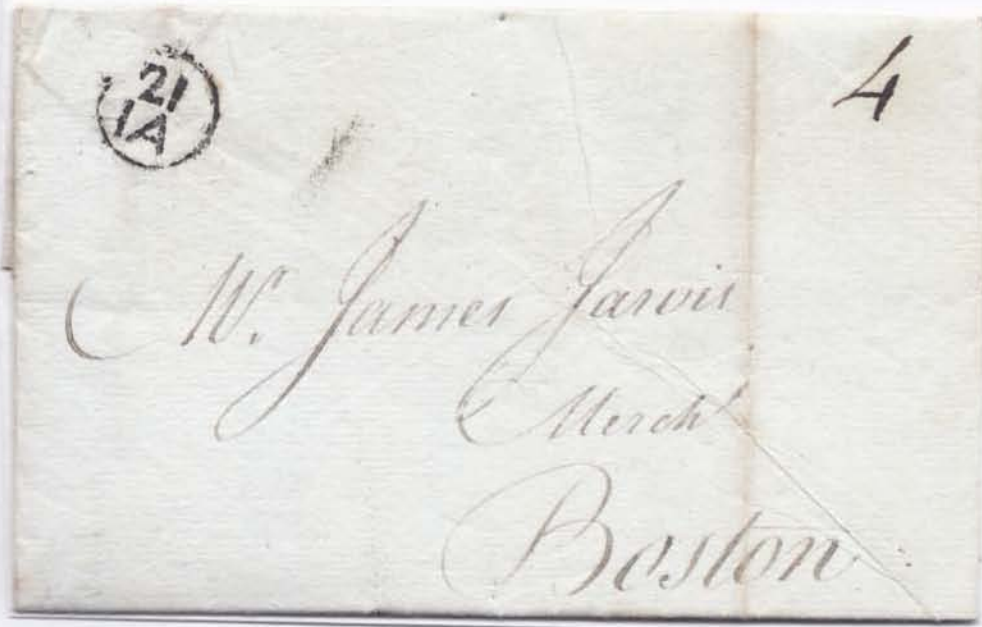 21
IA
4
Mr. James Jarvis
Mercht
Boston